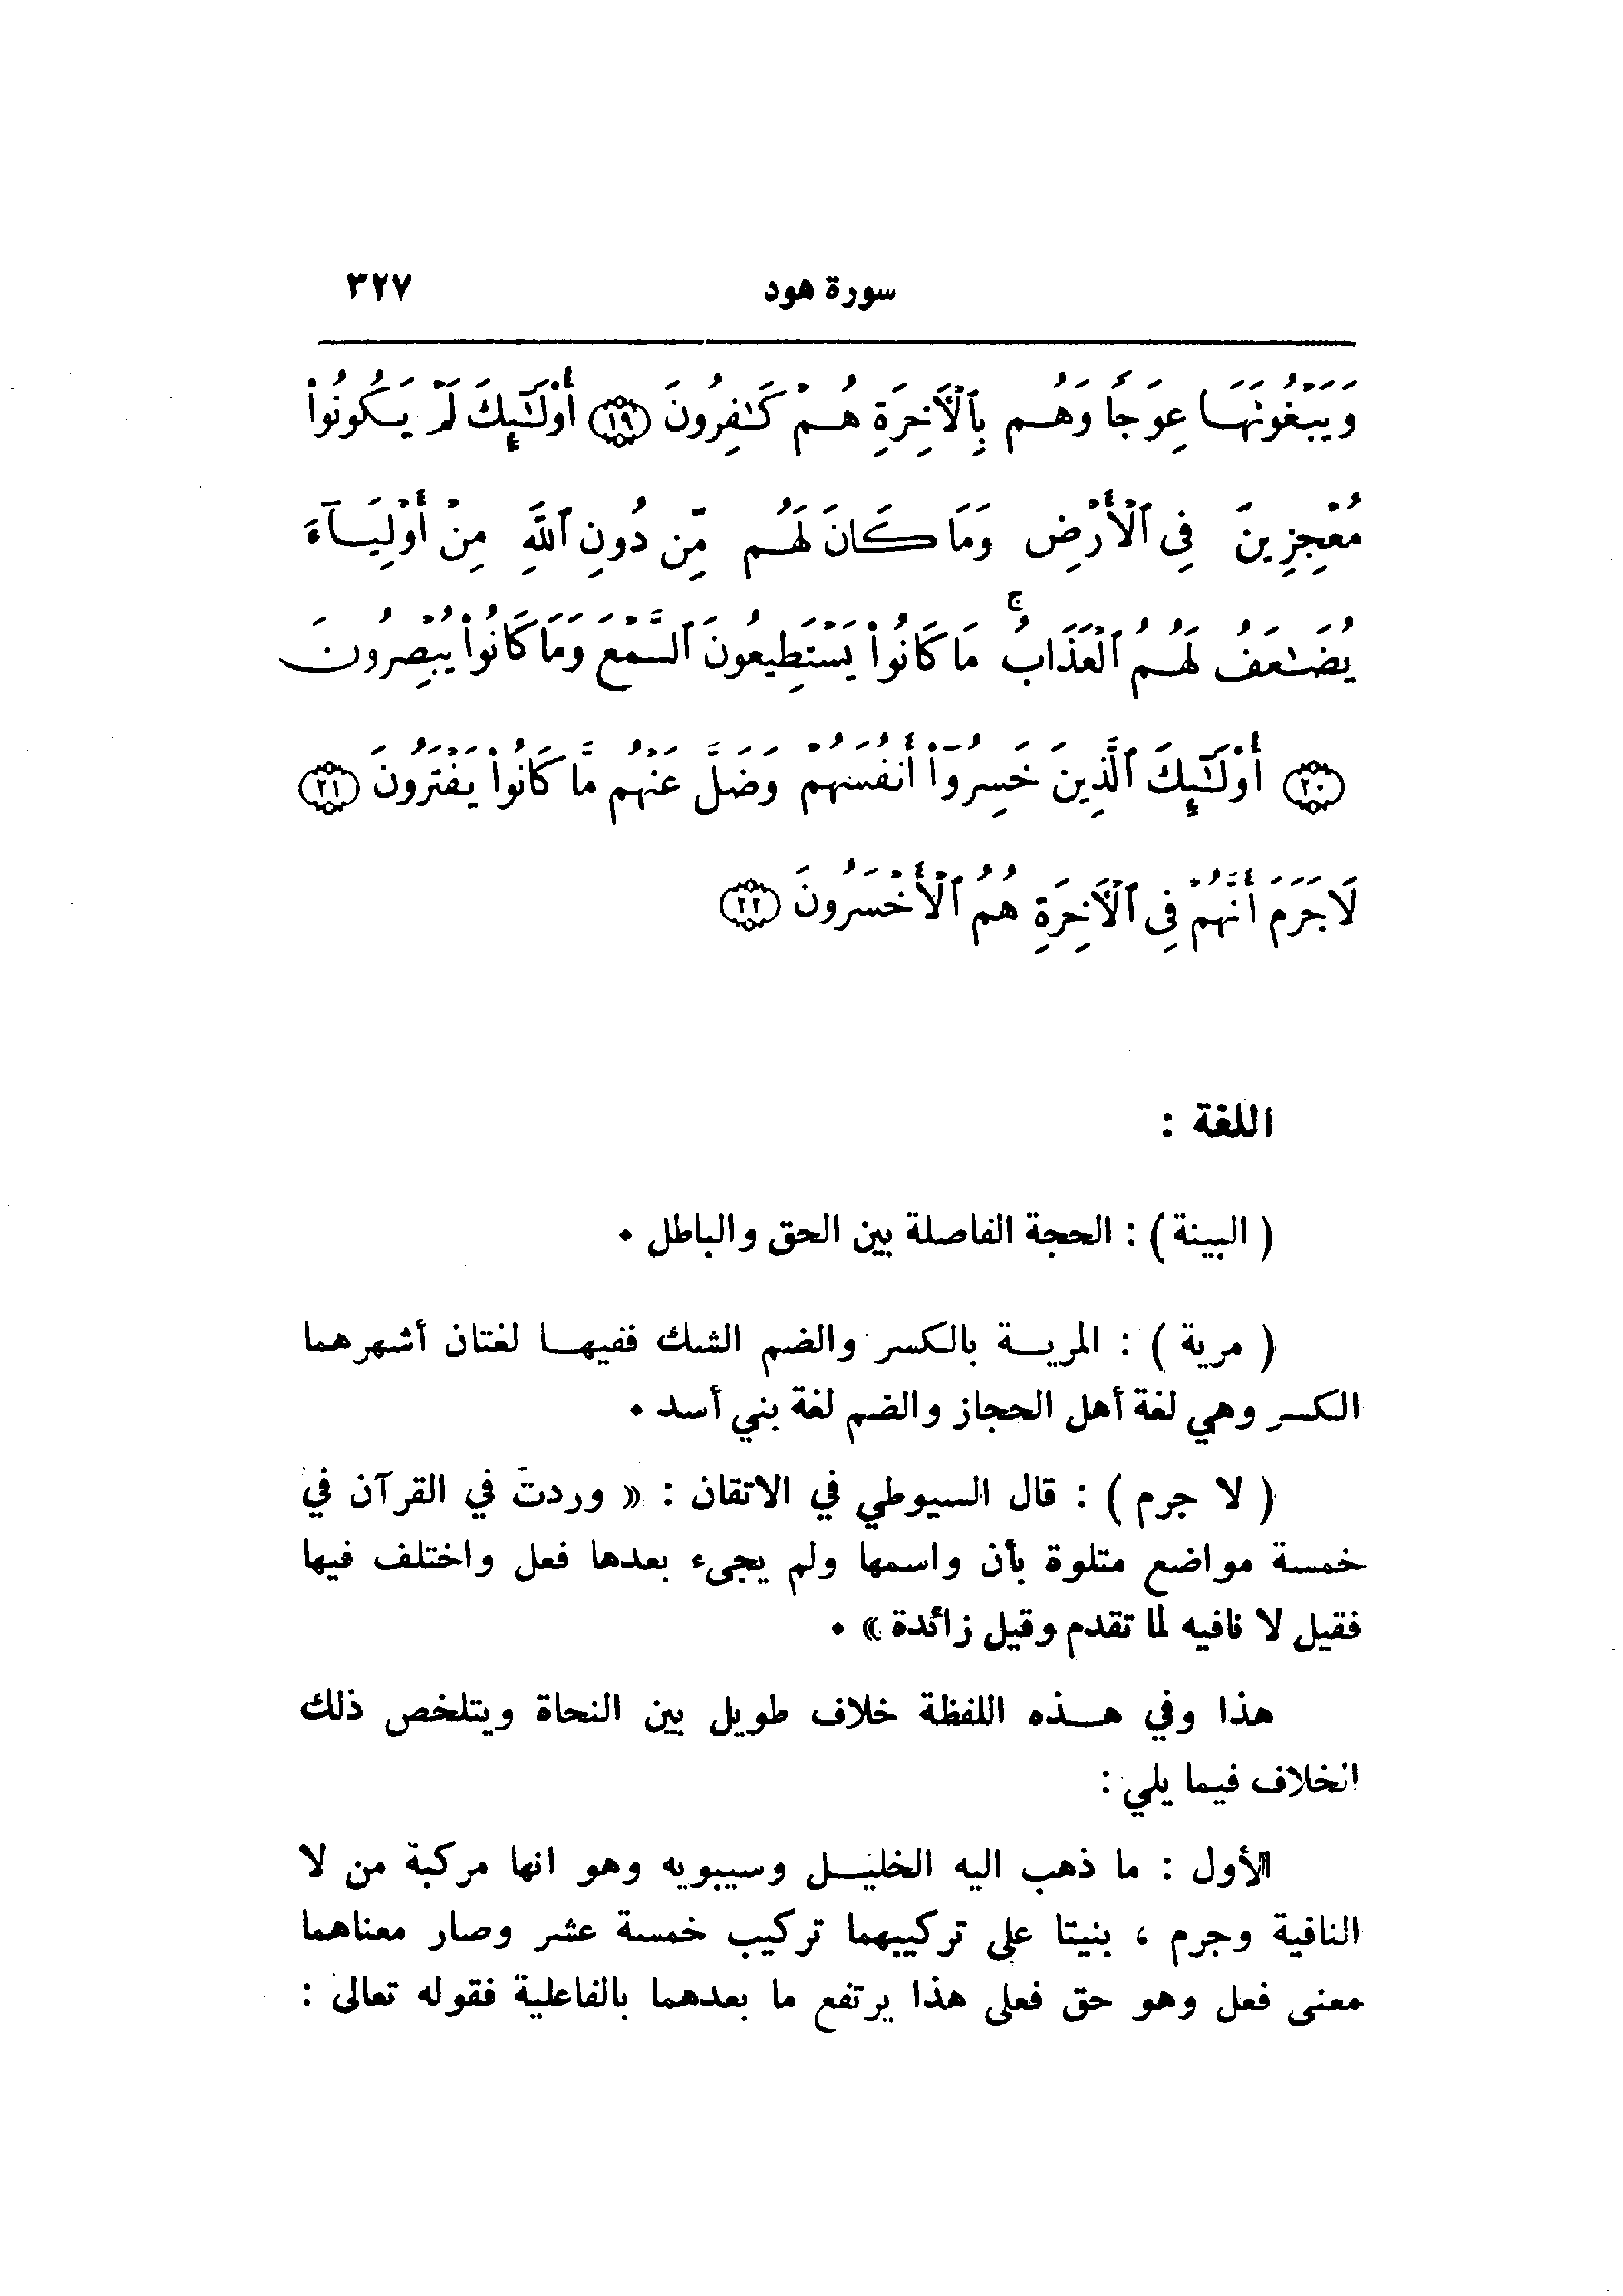 سورة هود ٣٢٧
وَيَبْغُونَهَا عِوَجًا وَهُم بِٱلْأَخِرَةِ هُمْ كَٰفِرُونَ ١٩ أُوْلَٰٓئِكَ لَمْ يَكُونُواْ
مُعْجِزِينَ فِى ٱلْأَرْضِ وَمَا كَانَ لَهُم مِّن دُونِ ٱللَّهِ مِنْ أَوْلِيَآءَ
يُضَٰعَفُ لَهُمُ ٱلْعَذَابُ ۚ مَا كَانُواْ يَسْتَطِيعُونَ ٱلسَّمْعَ وَمَا كَانُواْ يُبْصِرُونَ
٢٠ أُوْلَٰٓئِكَ ٱلَّذِينَ خَسِرُوٓاْ أَنفُسَهُمْ وَضَلَّ عَنْهُم مَّا كَانُواْ يَفْتَرُونَ ٢١
لَا جَرَمَ أَنَّهُمْ فِى ٱلْأَخِرَةِ هُمُ ٱلْأَخْسَرُونَ ٢٢
اللغة :
( البينة ) : الحجة الفاصلة بين الحق والباطل .
( مرية ) : المريــة بالكسر والضم الشك ففيهــا لغتان أشهرهما
الكسر وهي لغة أهل الحجاز والضم لغة بني أسد .
( لا جرم ) : قال السيوطي في الاتقان : « وردت في القرآن في
خمسة مواضع متلوة بأن واسمها ولم يجىء بعدها فعل واختلف فيها
فقيل لا نافيه لما تقدم وقيل زائدة » .
هذا وفي هــذه اللفظة خلاف طويل بين النحاة ويتلخص ذلك
الخلاف فيما يلي :
الأول : ما ذهب اليه الخليــل وسيبويه وهو انها مركبة من لا
النافية وجرم ، بنيتا على تركيبهما تركيب خمسة عشر وصار معناهما
معنى فعل وهو حق فعلى هذا يرتفع ما بعدهما بالفاعلية فقوله تعالى :